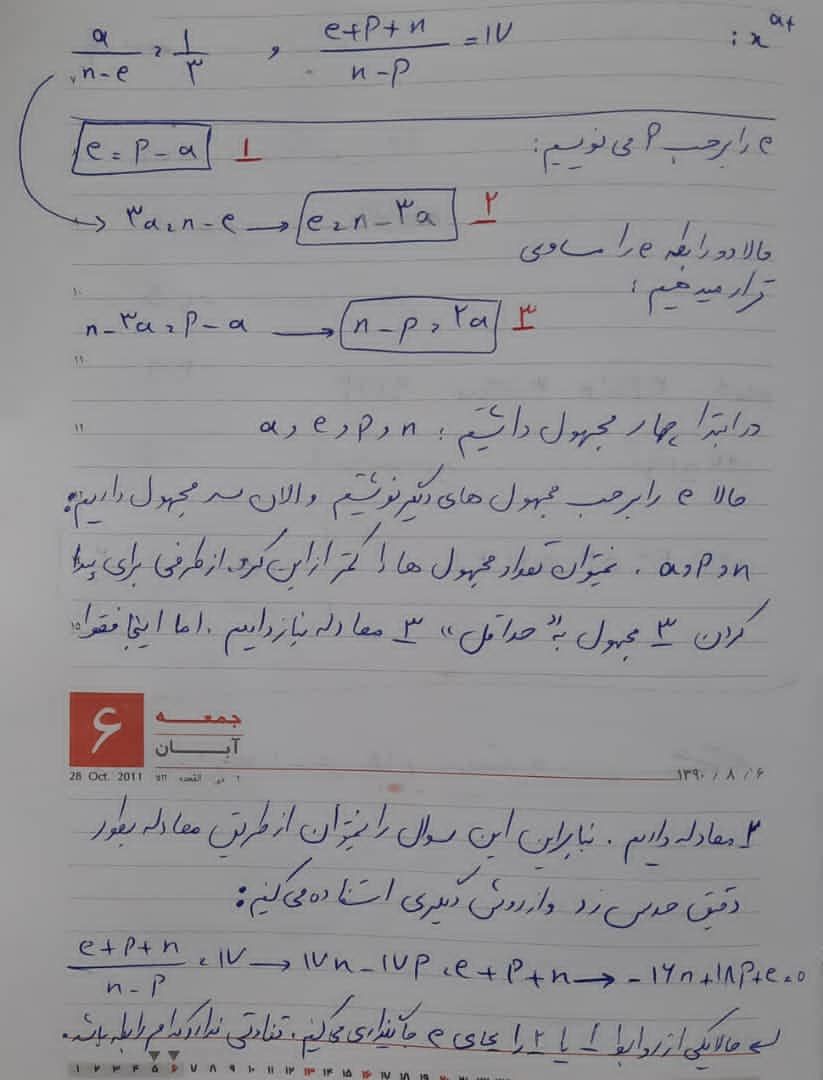 a/(n-e) = ۱/۳ , (e+p+n)/(n-p) = ۱۷ : x^{a+}
e را برحسب P می نویسیم:
e = P - a ۱
۳a = n - e → e = n - ۳a ۲
حالا دو رابطه e را مساوی
قرار میدهیم:
۱۰
n - ۳a = P - a → n - P = ۲a ۳
۱۱
۱۲
در ابتدا چهار مجهول داشتیم: n و p و e و a
حالا e را برحسب مجهول های دیگر نوشتیم و الان سه مجهول داریم:
n و p و a . نمیتوان تعداد مجهول ها را کمتر از این کرد. از طرفی برای پیدا
کردن ۳ مجهول به "حداقل" ۳ معادله نیاز داریم . اما اینجا فقط
۱۵
۶
جمعه
آبان
28 Oct. 2011
۱۳۹۰ / ۸ / ۶
۲ معادله داریم . بنابراین این سوال را نمیتوان از طریق معادله بطور
دقیق حدس زد و از روش دیگری استفاده می کنیم:
(e+p+n)/(n-p) = ۱۷ → ۱۷n - ۱۷p = e + p + n → -۱۶n + ۱۸p + e = ۰
حالا یکی از روابط ۱ یا ۲ را بجای e جایگذاری می کنیم. تفاوتی ندارد کدام رابطه باشد.
۱ ۲ ۳ ۴ ۵ ۶ ۷ ۸ ۹ ۱۰ ۱۱ ۱۲ ۱۳ ۱۴ ۱۵ ۱۶ ۱۷ ۱۸ ۱۹ ۲۰